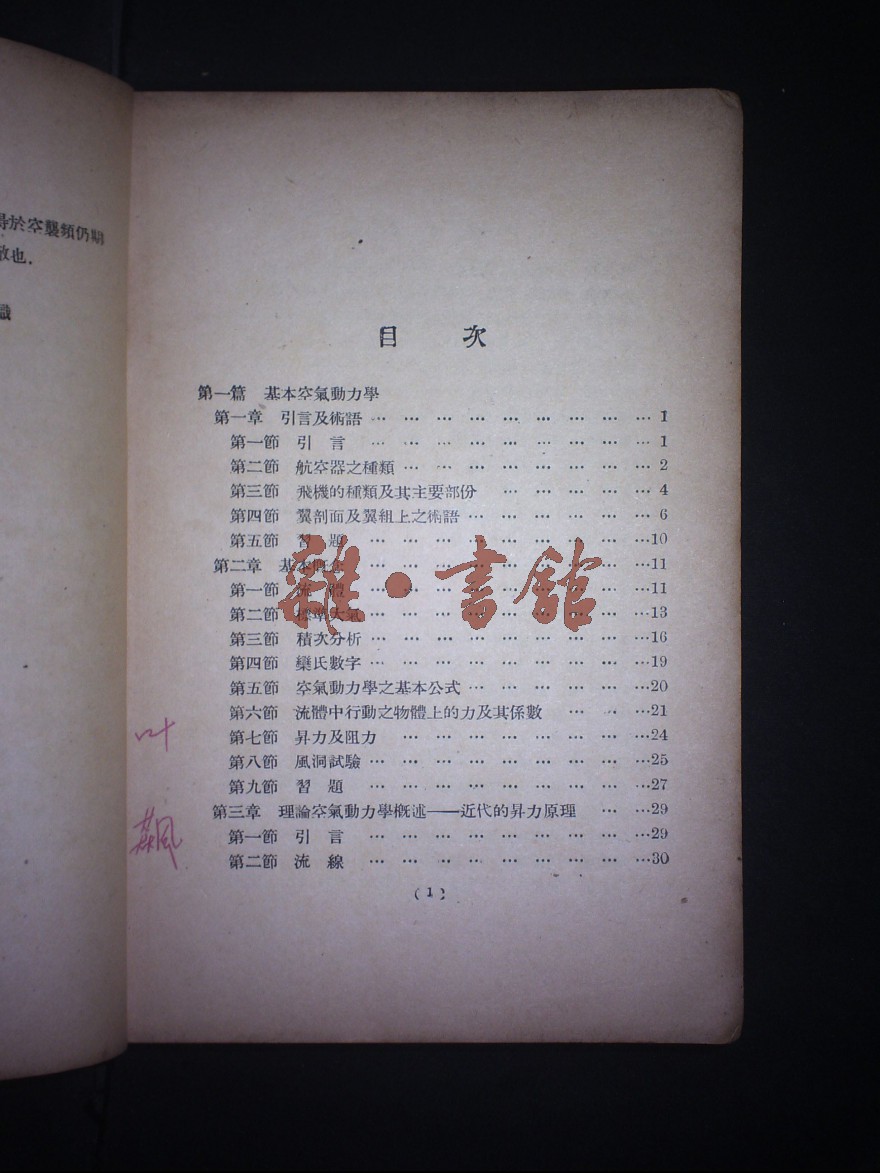 於空襲頻仍期
也.
識
目 次
第一篇 基本空氣動力學
第一章 引言及術語 … … … … … … … … … 1
第一節 引 言 … … … … … … … … … 1
第二節 航空器之種類 … … … … … … … … 2
第三節 飛機的種類及其主要部份 … … … … … 4
第四節 翼剖面及翼組上之術語 … … … … … … 6
第五節 習 題 … … … … … … … … …10
第二章 基本概念 … … … … … … … … …11
第一節 流 體 … … … … … … … … …11
第二節 標準大氣 … … … … … … … … …13
第三節 積次分析 … … … … … … … … …16
第四節 欒氏數字 … … … … … … … … …19
第五節 空氣動力學之基本公式 … … … … … …20
第六節 流體中行動之物體上的力及其係數 … … …21
第七節 昇力及阻力 … … … … … … … …24
第八節 風洞試驗 … … … … … … … … …25
第九節 習 題 … … … … … … … … …27
第三章 理論空氣動力學概述——近代的昇力原理 … …29
第一節 引 言 … … … … … … … … …29
第二節 流 線 … … … … … … … … …30
(1)
叶
雜·書館